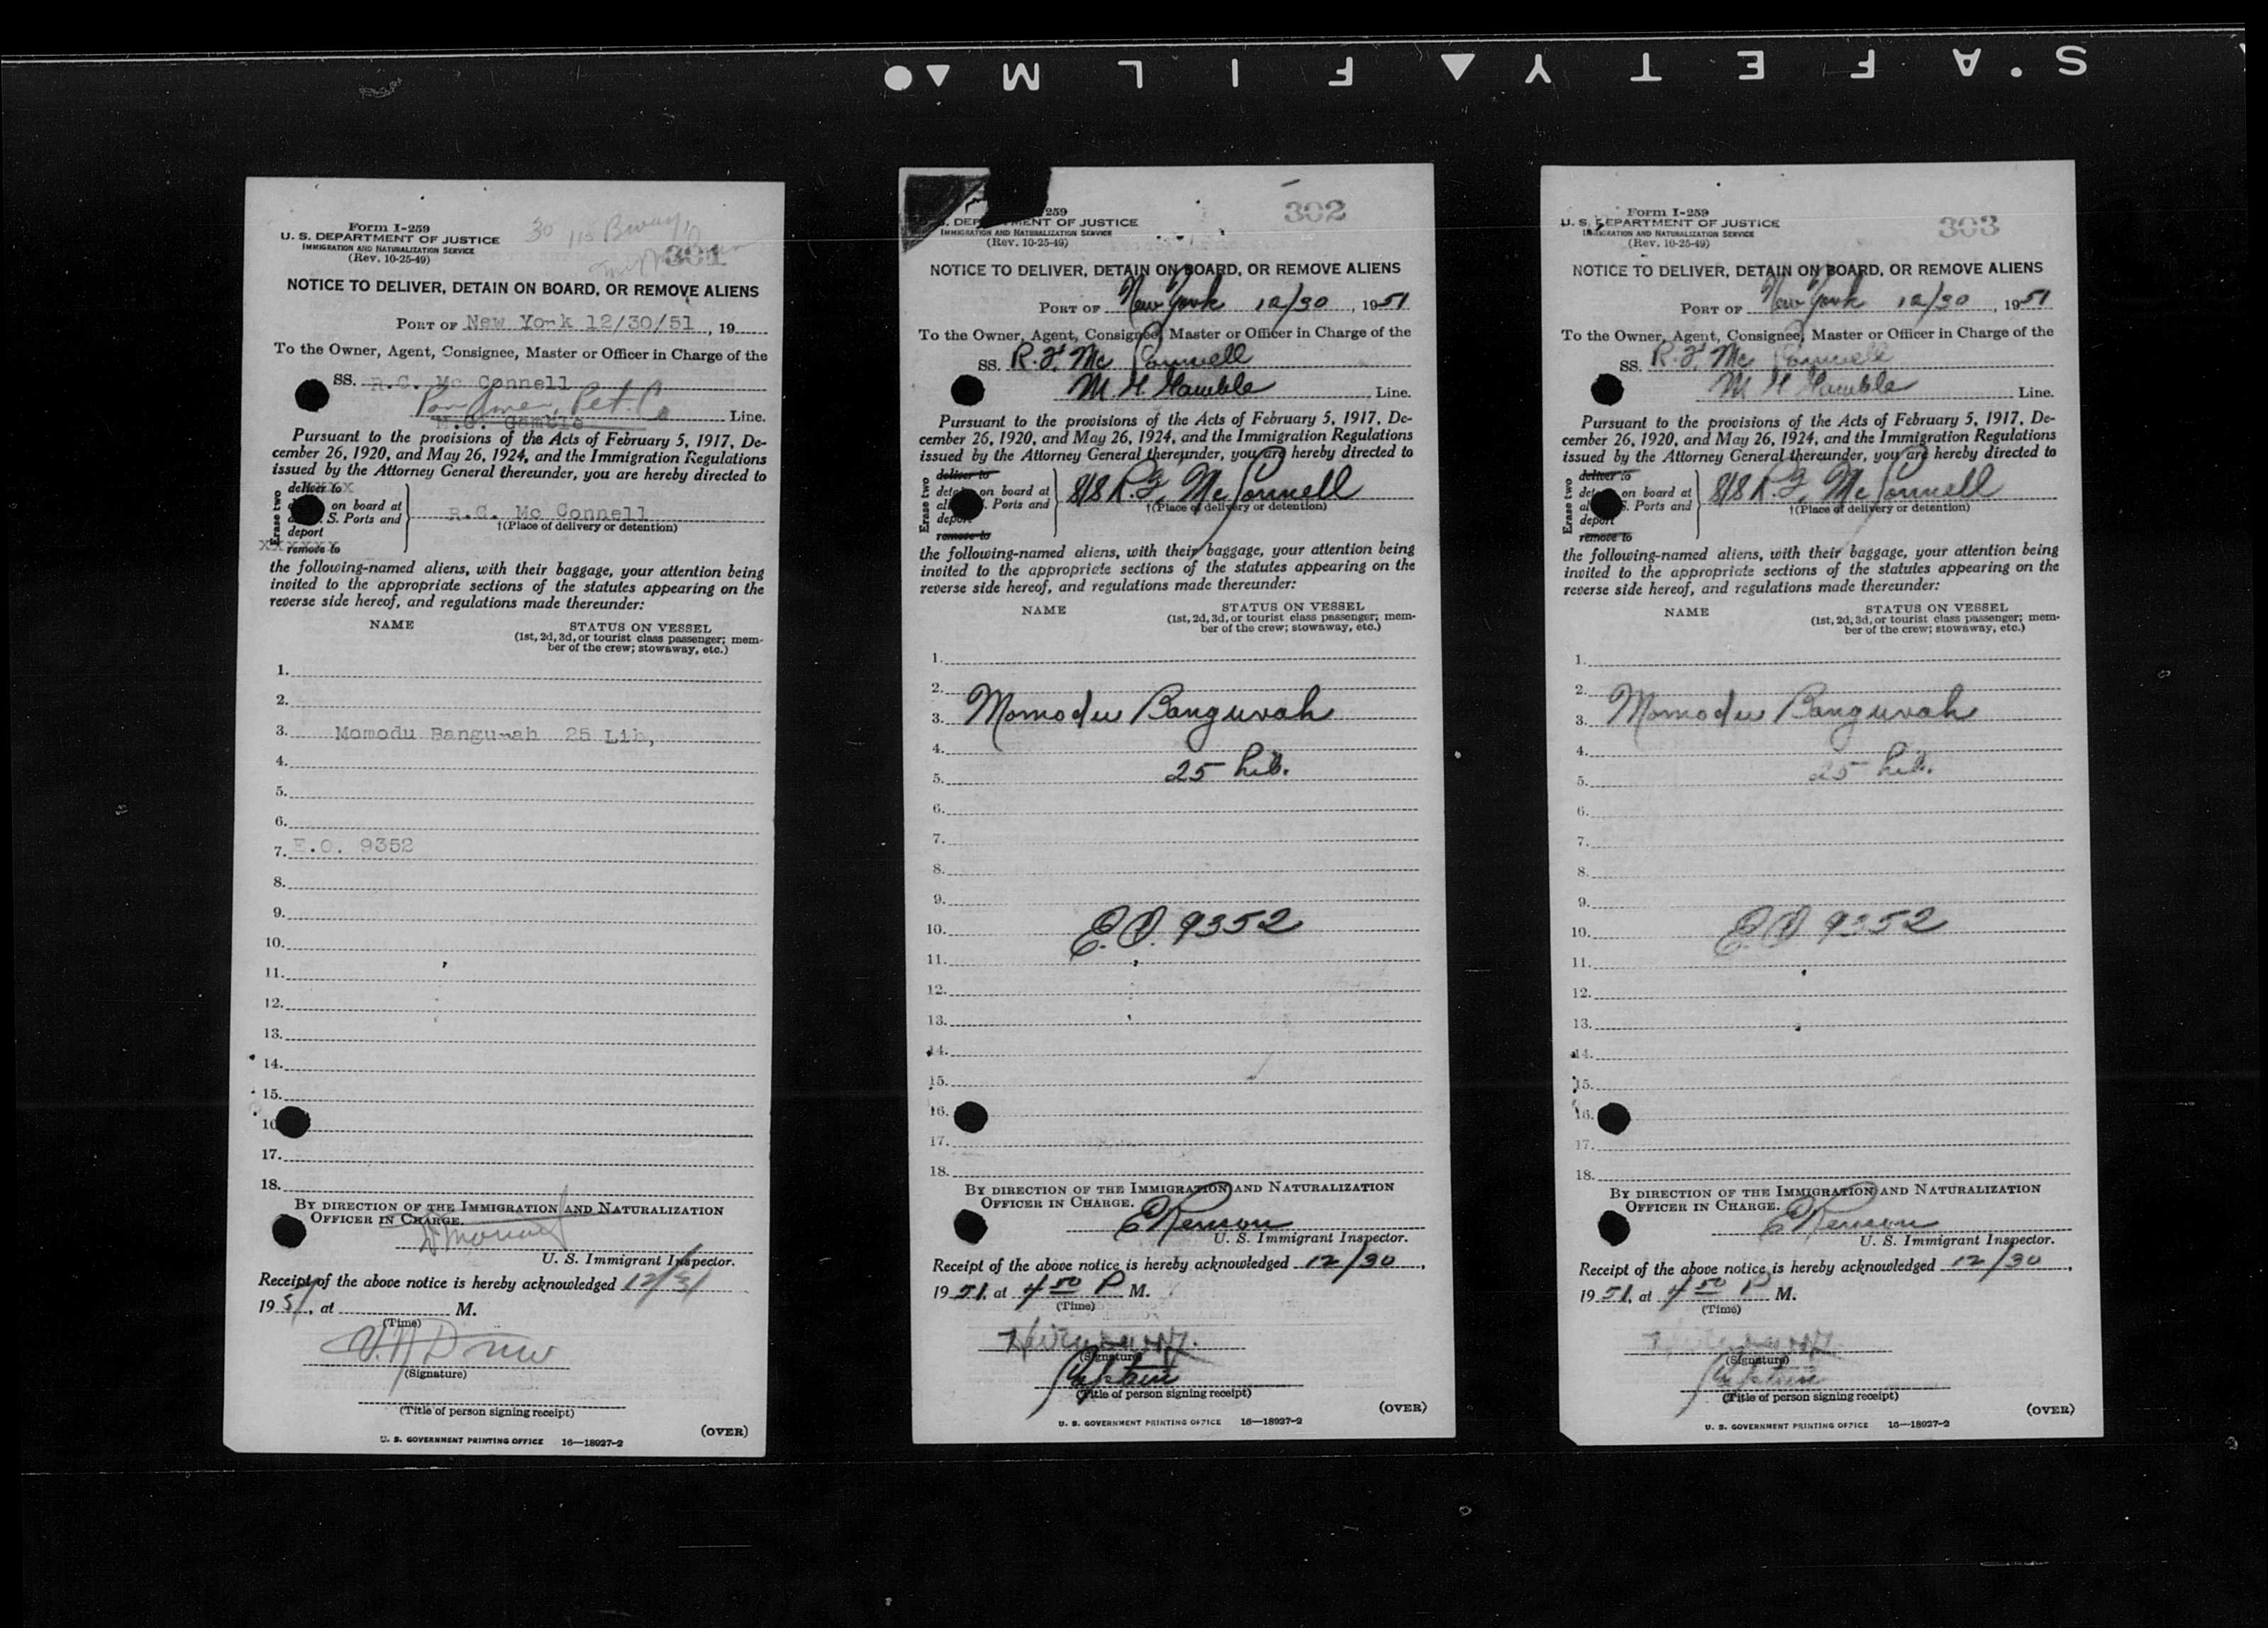 S·AFETY▲FILM▲●
Form I-259
U. S. DEPARTMENT OF JUSTICE
IMMIGRATION AND NATURALIZATION SERVICE
(Rev. 10-25-49)
301
NOTICE TO DELIVER, DETAIN ON BOARD, OR REMOVE ALIENS
PORT OF New York 12/30/51, 19
To the Owner, Agent, Consignee, Master or Officer in Charge of the
SS. R.C. Mc Connell
Pan Amer. Pet. Co
M.G. Gamble Line.
Pursuant to the provisions of the Acts of February 5, 1917, De-
cember 26, 1920, and May 26, 1924, and the Immigration Regulations
issued by the Attorney General thereunder, you are hereby directed to
Erase two
deliver to
on board at
S. Ports and
deport
remove to
R.C. Mc Connell
†(Place of delivery or detention)
the following-named aliens, with their baggage, your attention being
invited to the appropriate sections of the statutes appearing on the
reverse side hereof, and regulations made thereunder:
NAME STATUS ON VESSEL
(1st, 2d, 3d, or tourist class passenger; mem-
ber of the crew; stowaway, etc.)
1.
2.
3. Momodu Banguwah 25 Lib,
4.
5.
6.
7. E.O. 9352
8.
9.
10.
11.
12.
13.
14.
15.
16
17.
18.
BY DIRECTION OF THE IMMIGRATION AND NATURALIZATION
OFFICER IN CHARGE.
U. S. Immigrant Inspector.
Receipt of the above notice is hereby acknowledged 12/31
1951, at M.
(Time)
(Signature)
(Title of person signing receipt)
(OVER)
U. S. GOVERNMENT PRINTING OFFICE 16—18927-2
259
302
DEPARTMENT OF JUSTICE
IMMIGRATION AND NATURALIZATION SERVICE
(Rev. 10-25-49)
NOTICE TO DELIVER, DETAIN ON BOARD, OR REMOVE ALIENS
PORT OF New York 12/30, 1951
To the Owner, Agent, Consignee, Master or Officer in Charge of the
SS. R.G. Mc Connell
M. G. Gamble Line.
Pursuant to the provisions of the Acts of February 5, 1917, De-
cember 26, 1920, and May 26, 1924, and the Immigration Regulations
issued by the Attorney General thereunder, you are hereby directed to
Erase two
deliver to
on board at
S. Ports and
deport
remove to
S/S R.G. Mc Connell
†(Place of delivery or detention)
the following-named aliens, with their baggage, your attention being
invited to the appropriate sections of the statutes appearing on the
reverse side hereof, and regulations made thereunder:
NAME STATUS ON VESSEL
(1st, 2d, 3d, or tourist class passenger; mem-
ber of the crew; stowaway, etc.)
1.
2.
3. Momodu Banguwah
4.
5. 25 Lib.
6.
7.
8.
9.
10. E.O. 9352
11.
12.
13.
14.
15.
16.
17.
18.
BY DIRECTION OF THE IMMIGRATION AND NATURALIZATION
OFFICER IN CHARGE.
U. S. Immigrant Inspector.
Receipt of the above notice is hereby acknowledged 12/30,
1951, at 4 50 P M.
(Time)
(Signature)
Captain
(Title of person signing receipt)
(OVER)
U. S. GOVERNMENT PRINTING OFFICE 16—18927-2
Form I-259
U. S. DEPARTMENT OF JUSTICE
IMMIGRATION AND NATURALIZATION SERVICE
(Rev. 10-25-49)
303
NOTICE TO DELIVER, DETAIN ON BOARD, OR REMOVE ALIENS
PORT OF New York 12/30, 1951
To the Owner, Agent, Consignee, Master or Officer in Charge of the
SS. R.G. Mc Connell
M. G. Gamble Line.
Pursuant to the provisions of the Acts of February 5, 1917, De-
cember 26, 1920, and May 26, 1924, and the Immigration Regulations
issued by the Attorney General thereunder, you are hereby directed to
Erase two
deliver to
on board at
S. Ports and
deport
remove to
S/S R.G. Mc Connell
†(Place of delivery or detention)
the following-named aliens, with their baggage, your attention being
invited to the appropriate sections of the statutes appearing on the
reverse side hereof, and regulations made thereunder:
NAME STATUS ON VESSEL
(1st, 2d, 3d, or tourist class passenger; mem-
ber of the crew; stowaway, etc.)
1.
2.
3. Momodu Banguwah
4.
5. 25 Lib.
6.
7.
8.
9.
10. E.O. 9352
11.
12.
13.
14.
15.
16.
17.
18.
BY DIRECTION OF THE IMMIGRATION AND NATURALIZATION
OFFICER IN CHARGE.
U. S. Immigrant Inspector.
Receipt of the above notice is hereby acknowledged 12/30,
1951, at 4 50 P M.
(Time)
(Signature)
Captain
(Title of person signing receipt)
(OVER)
U. S. GOVERNMENT PRINTING OFFICE 16—18927-2